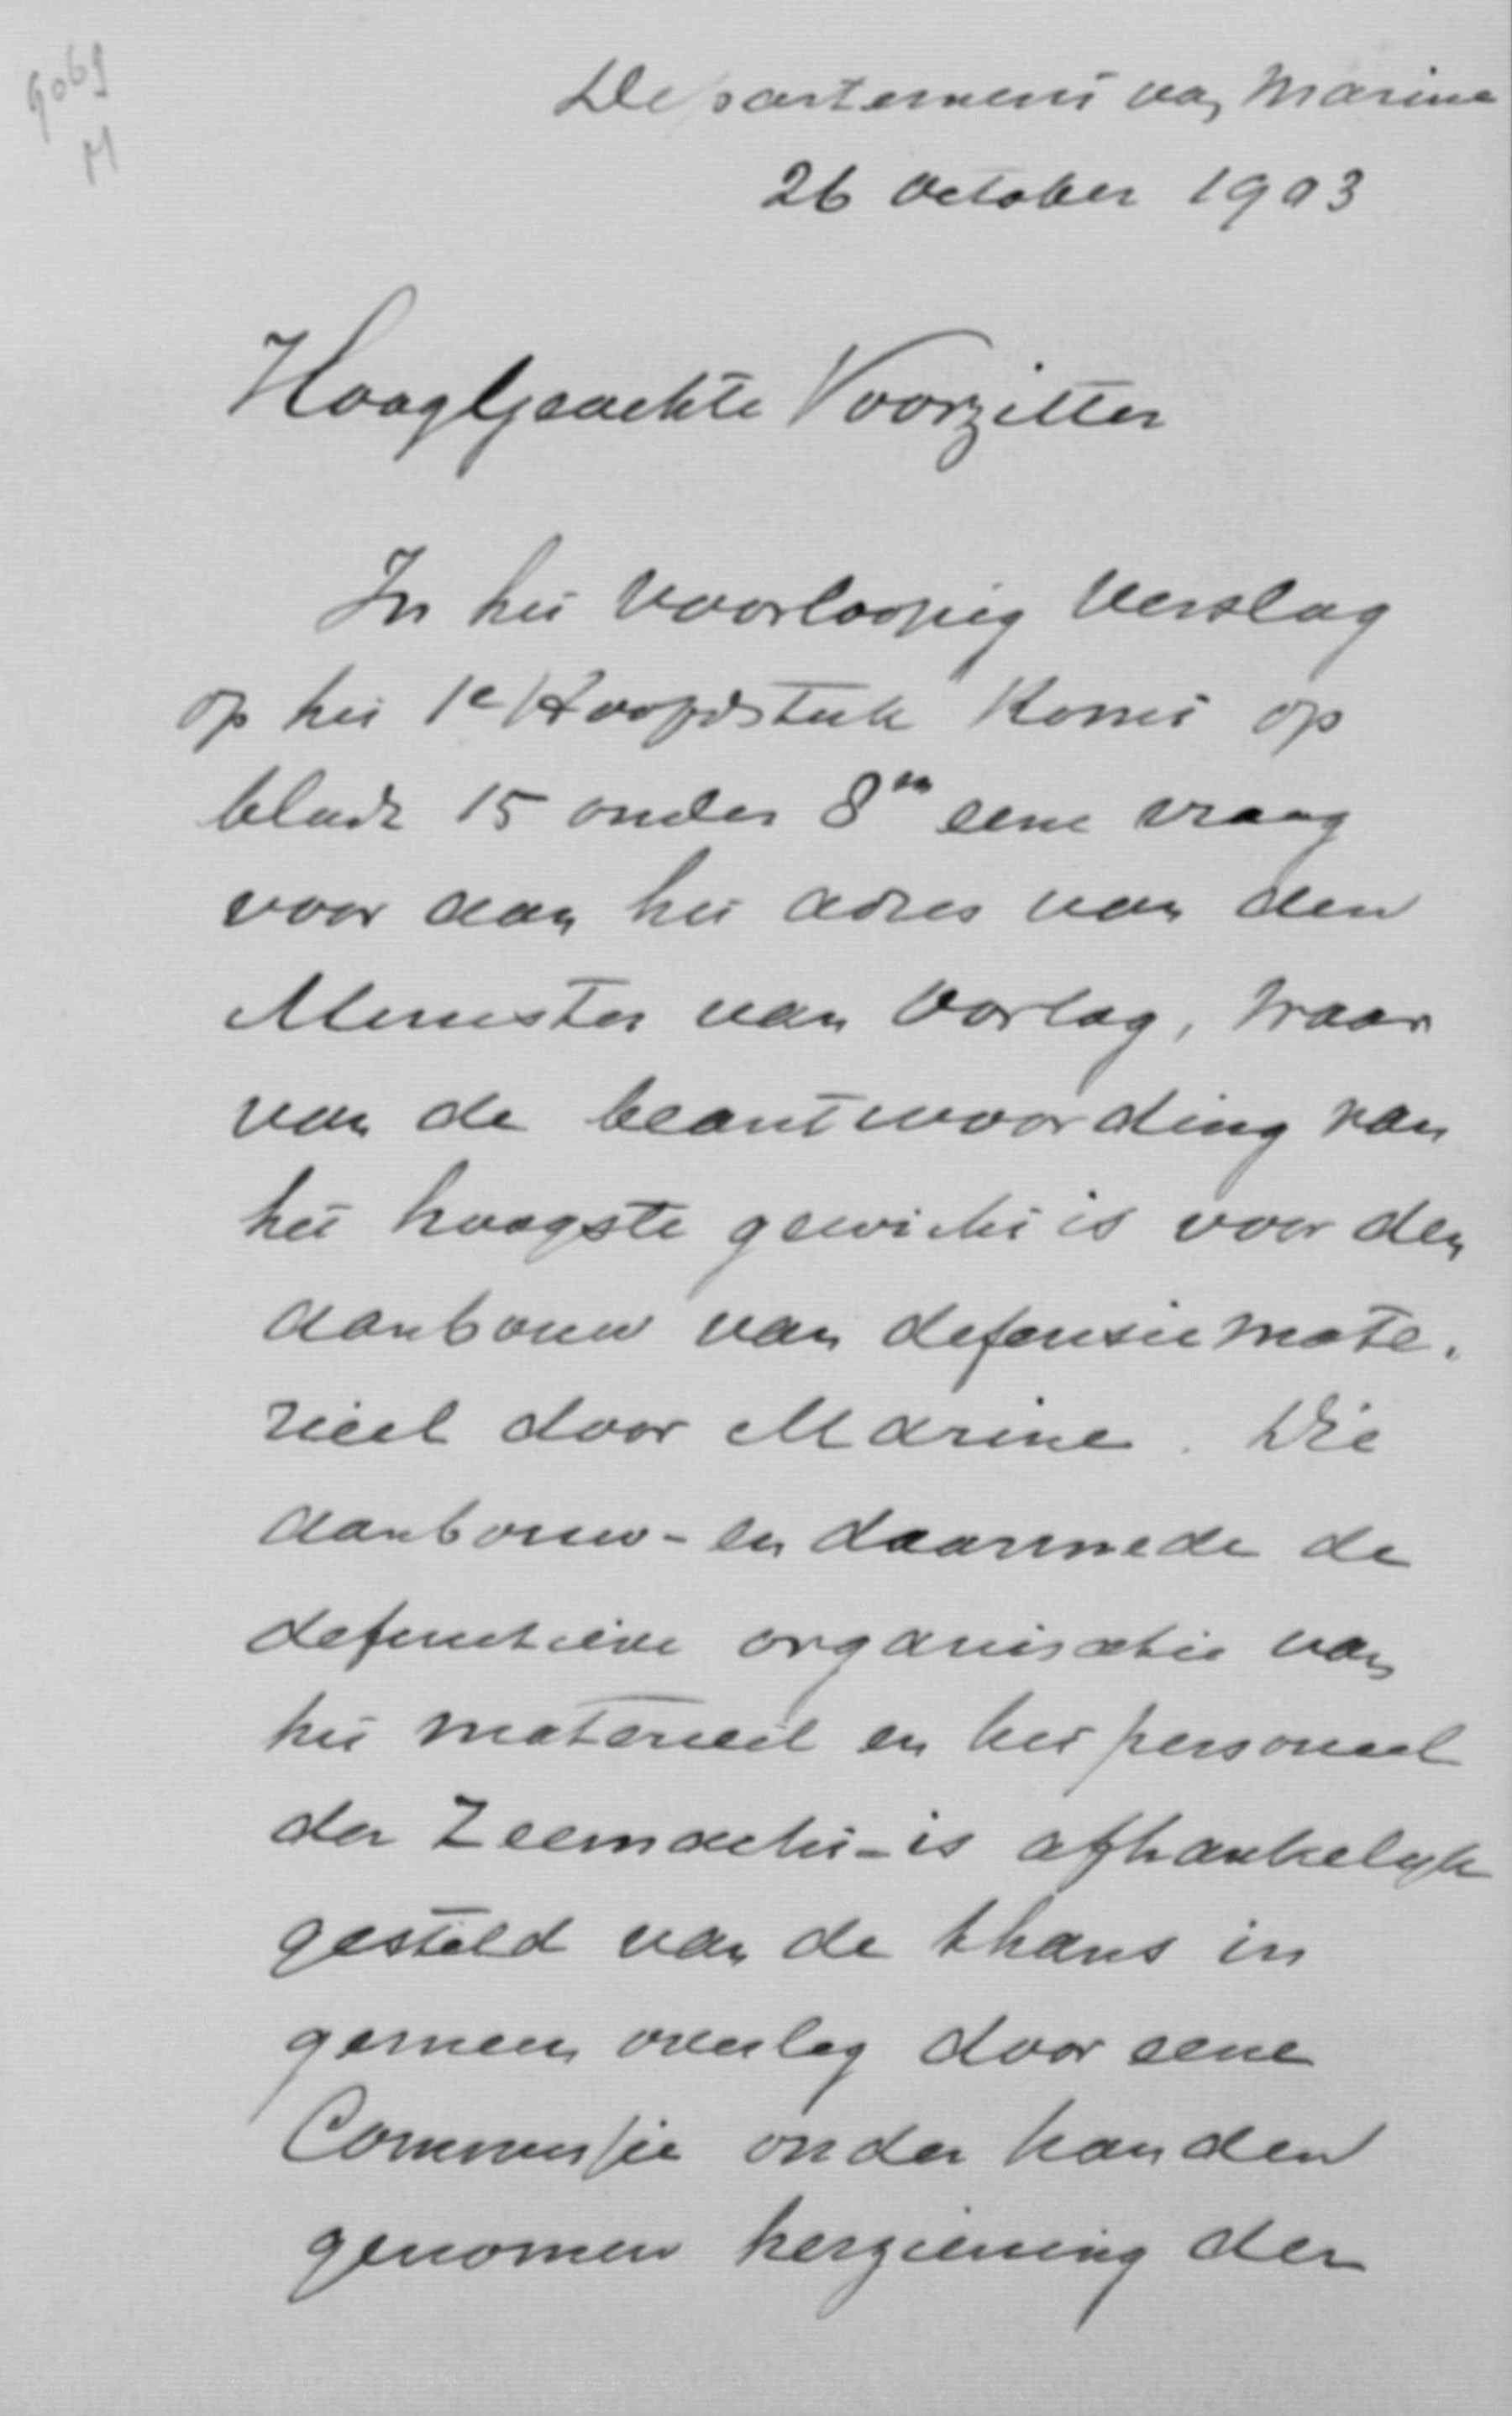 9069
M
Departement van Marine
26 October 1903
HoogGeachte Voorzitter
In het Voorloopig Verslag
op het 1e Hoofdstuk komt op
bladz 15 onder 8en eene vraag
voor aan het adres van den
Minister van Oorlog, waar
van de beantwoording van
het hoogste gewicht is voor den
aanbouw van defensiemate-
rieel door Marine. Die
aanbouw - en daarmede de
definitieve organisatie van
het materieel en het personeel
der Zeemacht - is afhankelijk
gesteld van de thans in
gemeen overleg door eene
Commissie onder handen
genomen herziening der